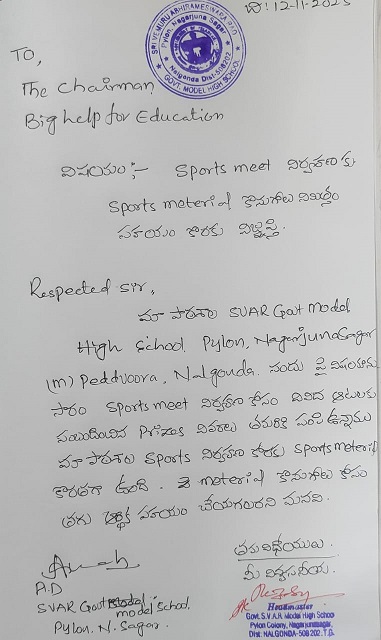 ది: 12-11-2025
SRI VEMURU ABHIRAMESWARA RAO
Pylon, Nagarjuna Sagar
Nalgonda Dist-508202
GOVT. MODEL HIGH SCHOOL
TO,
The Chairman
Big help for Education
విషయం :- Sports meet నిర్వహణకు
Sports meterial కొనుగోలు నిమిత్తం
సహాయం కొరకు విజ్ఞప్తి.
Respected sir,
మా పాఠశాల SVAR Govt Model
High School Pylon, NagarjunaSagar
(m) Peddvoora, Nalgonda. నందు పై విషయాను
సారం Sports meet నిర్వహణ కోసం వివిధ ఆటలకు
సంబంధించిన Prizes వివరాలు తమరికి పంపి ఉన్నాము
మా పాఠశాల Sports నిర్వహణ కొరకు Sports meterial
కొరతగా ఉంది. meterial కొనుగోలు కోసం
తగు ఆర్థిక సహాయం చేయగలరని మనవి.
తమ విధేయులు
మీ విశ్వసనీయ.
P.D
SVAR Govt model School.
Pylon, N. Sagar.
Headmaster
Govt. S.V.A.R. Model High School
Pylon Colony, Nagarjunasagar,
Dist: NALGONDA-508 202. T.G.